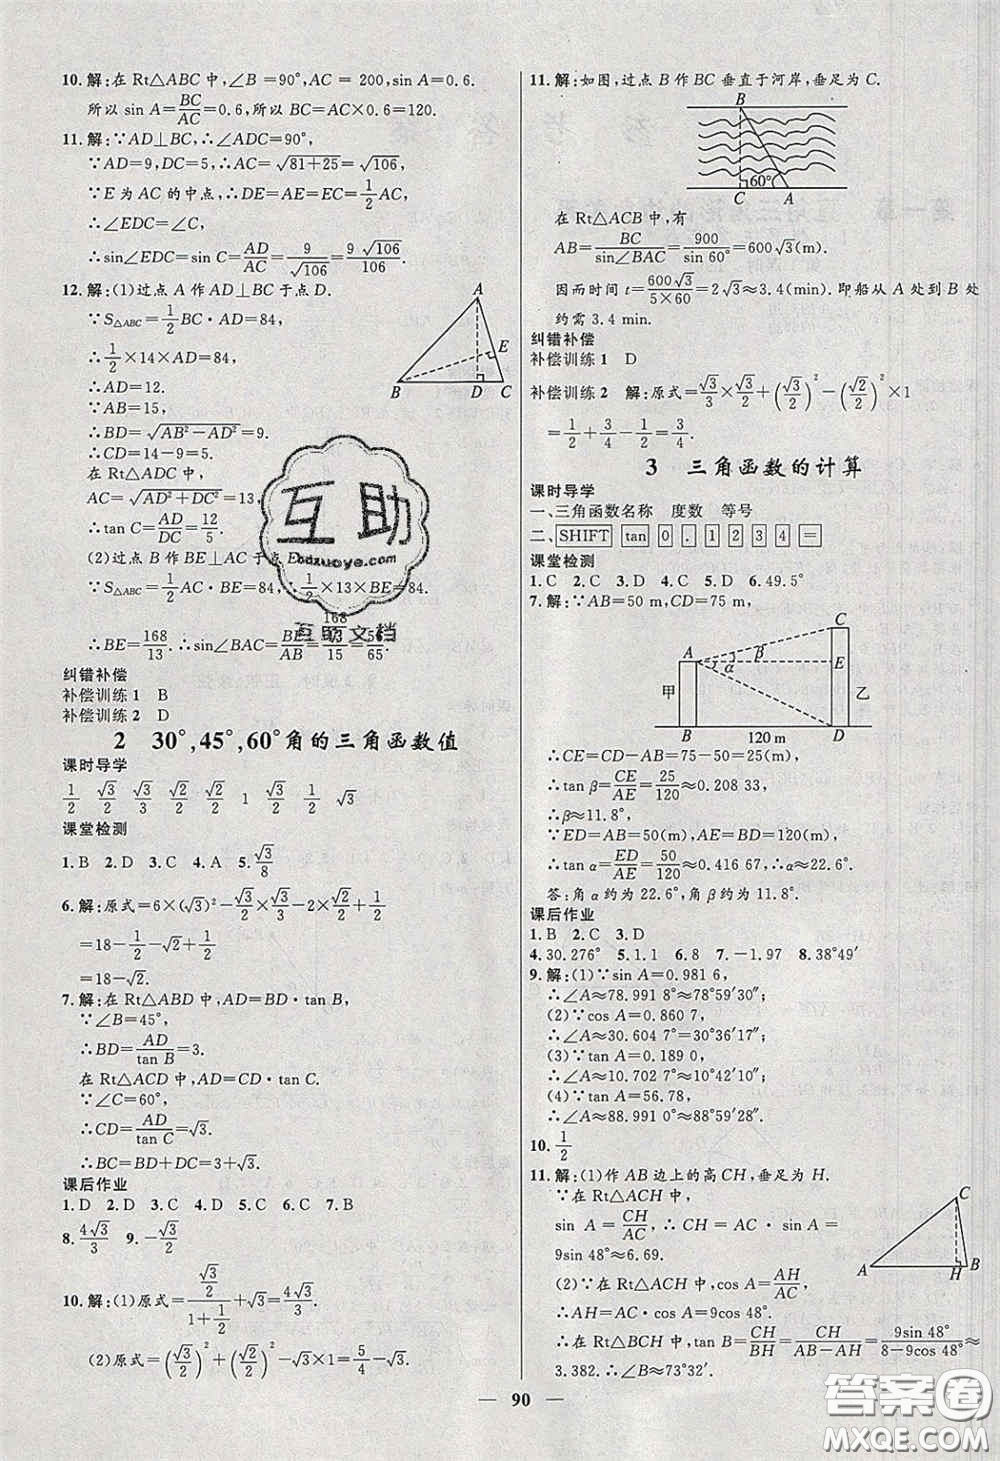 10. 解:在 Rt△ABC 中,∠B=90°,AC=200,sin A=0.6.
所以 sin A=BC/AC=0.6,所以 BC=200×0.6=120.
11. 解:∵AD⊥BC,∴∠ADC=90°,
∵AD=9,DC=5,∴AC=√(81+25)=√106,
∵E 为 AC 的中点,∴DE=AE=EC=1/2AC,
∴∠EDC=∠C,
∴sin∠EDC=sin C=AD/AC=9/√106=9√106/106.
12. 解:(1)过点 A 作 AD⊥BC 于点 D.
∵S△ABC=1/2BC·AD=84,
∴1/2×14×AD=84,
∴AD=12.
∵AB=15,
∴BD=√(AB²−AD²)=9.
∴CD=14−9=5.
在 Rt△ADC 中,
AC=√(AD²+DC²)=13,
∴tan C=AD/DC=12/5.
(2)过点 B 作 BE⊥AC 于点 E,
∵S△ABC=1/2AC·BE=84,∴1/2×13×BE=84.
∴BE=168/13.∴sin∠BAC=BE/AB=(168/13)/15=56/65.
A
E
B
D
C
纠错补偿
补偿训练 1 B
补偿训练 2 D
2 30°,45°,60°角的三角函数值
课时导学
1/2 √3/2 √3/3 √2/2 √2/2 1 √3/2 1/2 √3
课堂检测
1. B 2. D 3. C 4. A 5. √3/8
6. 解:原式=6×(√3)²−√3/2×√3/3−2×√2/2+1/2
=18−1/2−√2+1/2
=18−√2.
7. 解:在 Rt△ABD 中,AD=BD·tan B,
∵∠B=45°,
∴BD=AD/tan B=3.
在 Rt△ACD 中,AD=CD·tan C.
∵∠C=60°,
∴CD=AD/tan C=√3.
∴BC=BD+DC=3+√3.
课后作业
1. D 2. D 3. C 4. A 5. C 6. C 7. B
8. 4√3/3 9. −√3
10. 解:(1)原式=(√3/2)/(1+1/2)+√3=4√3/3.
(2)原式=(√3/2)²+(√2/2)²−√3×1=5/4−√3.
11. 解:如图,过点 B 作 BC 垂直于河岸,垂足为 C.
B
60°
C
A
在 Rt△ACB 中,有
AB=BC/sin∠BAC=900/sin 60°=600√3(m).
因而时间 t=600√3/(5×60)=2√3≈3.4(min).即船从 A 处到 B 处
约需 3.4 min.
纠错补偿
补偿训练 1 D
补偿训练 2 解:原式=√3/3×√3/2+(√3/2)²−(√2/2)²×1
=1/2+3/4−1/2=3/4.
3 三角函数的计算
课时导学
一、三角函数名称 度数 等号
二、SHIFT tan 0 . 1 2 3 4 =
课堂检测
1. C 2. C 3. D 4. C 5. D 6. 49.5°
7. 解:∵AB=50 m,CD=75 m,
C
A
β
α
E
甲
乙
B
120 m
D
∴CE=CD−AB=75−50=25(m).
∴tan β=CE/AE=25/120≈0.208 33,
∴β≈11.8°.
∵ED=AB=50(m),AE=BD=120(m),
∴tan α=ED/AE=50/120≈0.416 67,∴α≈22.6°.
答:角 α 约为 22.6°,角 β 约为 11.8°.
课后作业
1. B 2. C 3. D
4. 30.276° 5. 1.1 6. 8 7. −1.97 8. 38°49′
9. 解:(1)∵sin A=0.981 6,
∴∠A≈78.991 8°≈78°59′30″;
(2)∵cos A=0.860 7,
∴∠A≈30.604 7°=30°36′17″;
(3)∵tan A=0.189 0,
∴∠A≈10.702 7°≈10°42′10″;
(4)∵tan A=56.78,
∴∠A≈88.991 0°≈88°59′28″.
10. 1/2
11. 解:(1)作 AB 边上的高 CH,垂足为 H.
∵在 Rt△ACH 中,
sin A=CH/AC,∴CH=AC·sin A=
9sin 48°≈6.69.
(2)∵在 Rt△ACH 中,cos A=AH/AC,
∴AH=AC·cos A=9cos 48°.
∴在 Rt△BCH 中,tan B=CH/BH=CH/(AB−AH)=9sin 48°/(8−9cos 48°)≈
3.382.∴∠B≈73°32′.
C
A
H
B
90
互助
bdzuoye.com
互助文档
答案圈
MXQE.COM